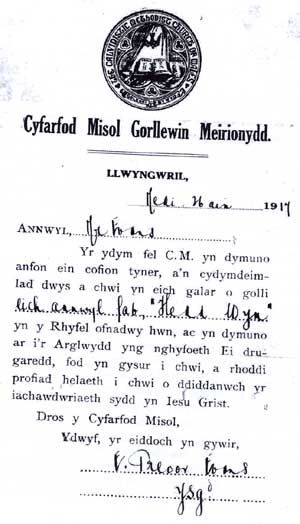 THE CALVINISTIC METHODIST CHURCH IN WALES
Cyfarfod Misol Gorllewin Meirionydd.
LLWYNGWRIL,
Medi 26ain 1917
ANNWYL, Mr Evans
Yr ydym fel C.M. yn dymuno
anfon ein cofion tyner, a'n cydymdeim-
lad dwys a chwi yn eich galar o golli
eich annwyl fab, "Hedd Wyn"
yn y Rhyfel ofnadwy hwn, ac yn dymuno
ar i'r Arglwydd yng nghyfoeth Ei dru-
garedd, fod yn gysur i chwi, a rhoddi
profiad helaeth i chwi o ddiddanwch yr
iachawdwriaeth sydd yn Iesu Grist.
Dros y Cyfarfod Misol,
Ydwyf, yr eiddoch yn gywir,
Trevor Evans
Ysg.